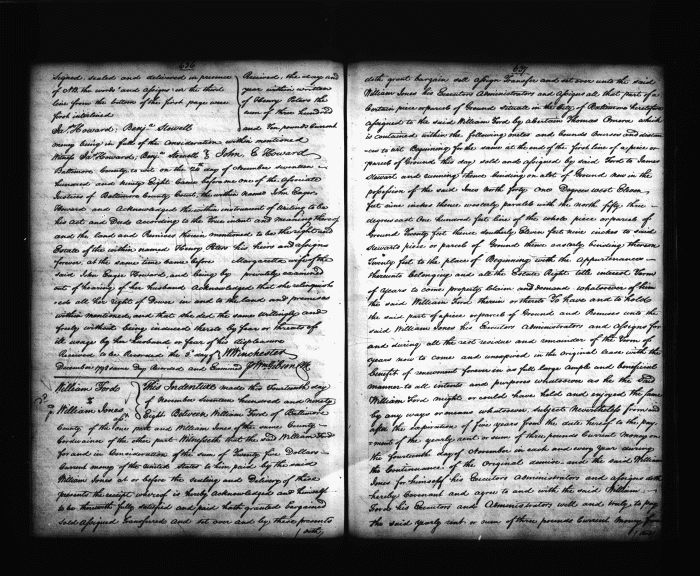 636
Signed, sealed and delivered in presence
of NB. the words "and assigns" on the third
line from the bottom of the first page were
first interlined
Js. Howard, Benja. Stowell
Received, the day and
year within written
of Henry Peters the
sum of three hundred
and Ten pounds Current
money being in full of the consideration within mentioned
John E Howard
Baltimore County to wit on the day of November seventeen
hundred and ninety Eight Came before me one of the associate
Justices of Baltimore County Court the within named John Eager
Howard and acknowledged the within instrument of writing to be
his act and Deed according to the true intent and Meaning thereof
and the land and Premises therein mentioned to be the right and
Estate of the within named Henry Peters his heirs and assigns
forever, at the same time Came before Margaretta wife of the
said John Eager Howard, and being by privately examined
out of hearing of her husband Acknowledged that she relinquish
-eth all her right of Dower in and to the land and premises
within mentioned, and that she did the same willingly and
freely without being induced thereto by fear or threats of
ill usage by her husband or fear of his displeasure
Received to be Recorded the day of W Winchester
December 1798 same day Recorded and Examd. Wm Gibson Clk
William Ford
&
William Jones
This Indenture made this fourteenth day
of November seventeen hundred and ninety
Eight Between William Ford of Baltimore
County of the one part and William Jones of the same County
Cordwainer of the other part Witnesseth that the said William Ford
for and in Consideration of the sum of Twenty five Dollars
Current money of the United States to him paid by the said
William Jones at or before the sealing and Delivery of these
presents the receipt whereof is hereby acknowledged and himself
to be therewith fully satisfied and paid hath granted bargained
sold assigned transferred and set over and by these presents
doth
637
doth grant bargain sell assign Transfer and set over unto the said
William Jones his Executors Administrators and assigns all that part of a
Certain piece or parcel of Ground situate in the City of Baltimore heretofore
assigned to the said William Ford by a certain Thomas which
is contained within the following metes and bounds Courses and distan
-ces to wit Beginning for the same at the end of the first line of a piece or
parcel of Ground this day sold and assigned by said Ford to James
Stewart and running thence binding on a lot of Ground now in the
possession of the said Jones north forty one Degrees west Eleven
feet nine inches thence westerly parallel with the north fifty three
degrees east One hundred feet line of the whole piece or parcel of
Ground Twenty feet thence southerly Eleven feet nine inches to said
Stewarts piece or parcel of Ground thence easterly binding thereon
Twenty feet to the place of Beginning with the appurtenances
thereunto belonging and all the Estate Right title interest Term
of years to come property claim and demand whatsoever of him
the said William Ford therein or thereto To have and to hold
the said part of a piece or parcel of Ground and Premises unto the
said William Jones his Executors Administrators and assigns for
and during all the rest residue and remainder of the Term of
years now to come and unexpired in the original lease with the
benefit of renewment forever in as full large ample and beneficial
manner to all intents and purposes whatsoever as he the said
William Ford might or could have held and enjoyed the same
by any ways or means whatsoever, subject Nevertheless from and
after the expiration of five years from the date hereof to the pay
-ment of the yearly rent or sum of three pounds Current Money on
the fourteenth day of November in each and every year during
the Continuance of the original demise and the said William
Jones for himself his Executors Administrators and assigns doth
hereby Covenant and agree to and with the said William
Ford his Executors and Administrators well and truly to pay
the said yearly rent or sum of three pounds Current Money from